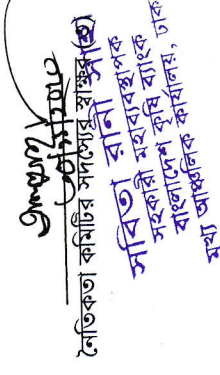 নৈতিকতা কমিটির সদস্যের স্বাক্ষর(৩)
সবিতা রানী সাহা
সহকারী মহাব্যবস্থাপক
বাংলাদেশ কৃষি ব্যাংক
মুখ্য আঞ্চলিক কার্যালয়, ঢাকা